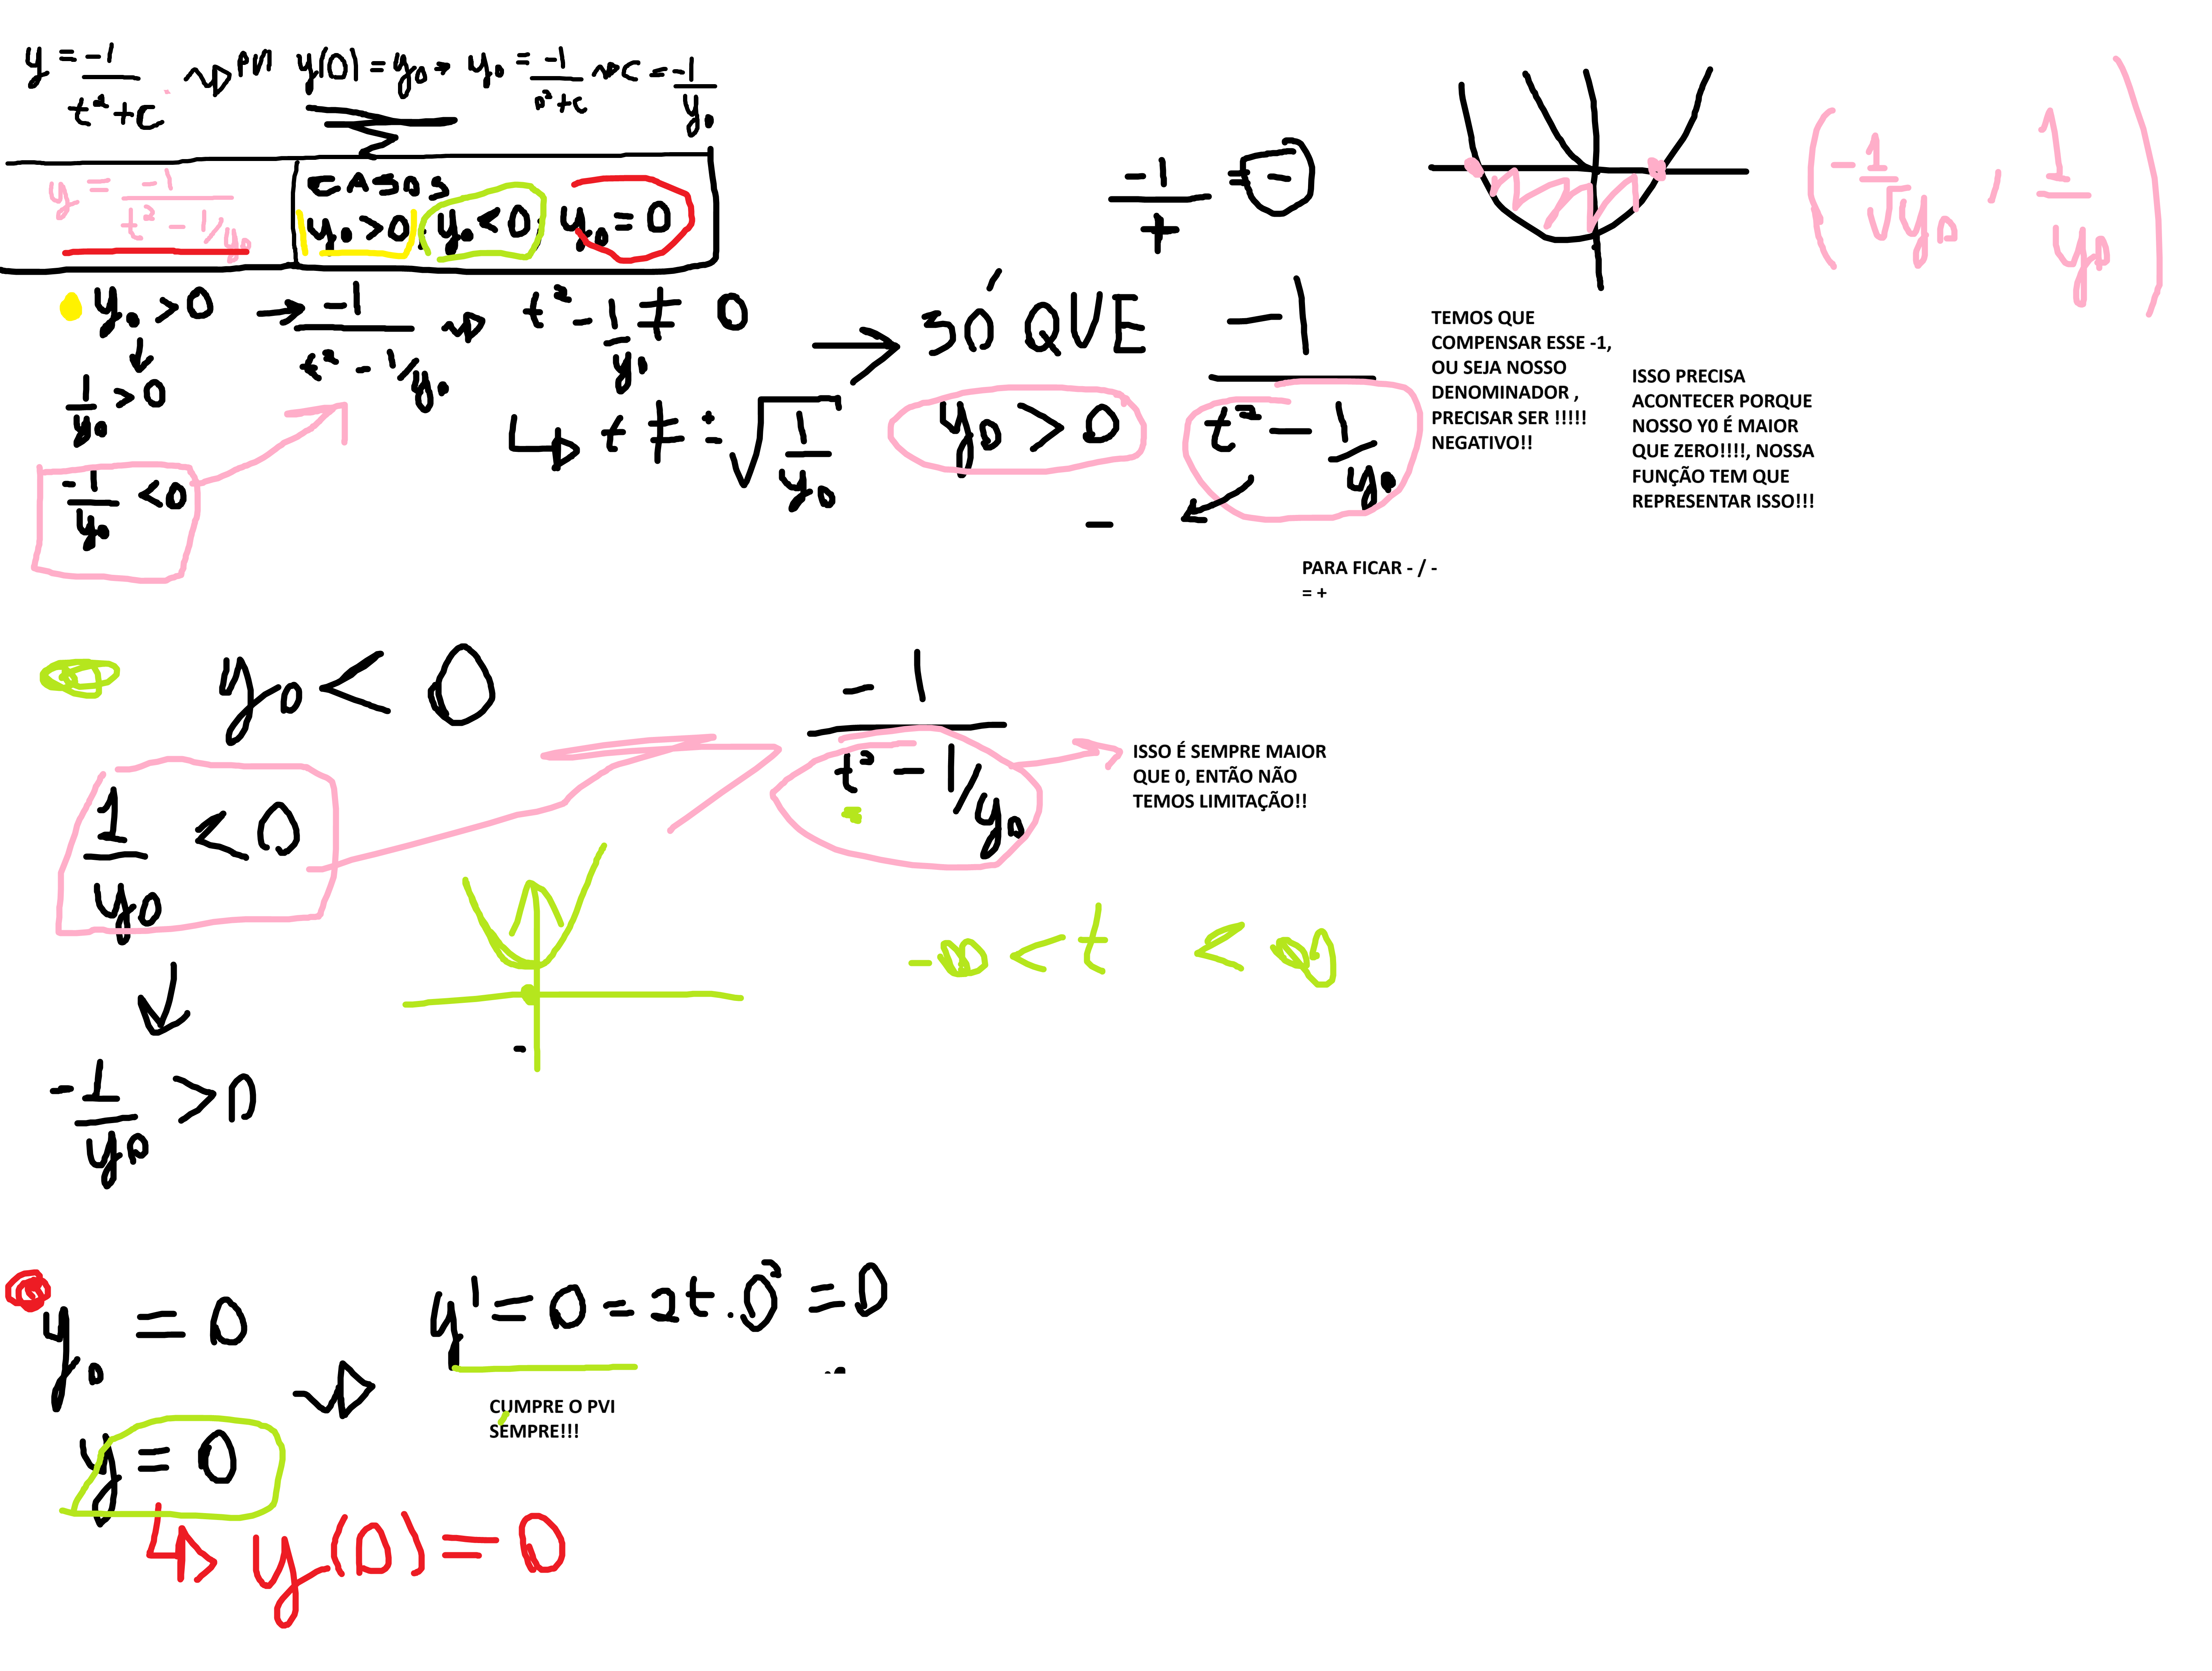 y = -1/(t² + c) ⇝ PVI y(0) = y₀ → y₀ = -1/(0² + c) ⇝ c = -1/y₀
y = -1/(t² - 1/y₀)
CASOS
y₀ > 0, y₀ < 0, y₀ = 0
-1/+ = -
(-1/√y₀ , 1/y₀)
y₀ > 0 → -1/(t² - 1/y₀) ⇝ t² - 1/y₀ ≠ 0 → SÓ QUE -1/(t² - 1/y₀)
↓
1/y₀ > 0
↳ t ≠ ±√(1/y₀)
y₀ > 0
-1/y₀ < 0
-
TEMOS QUE
COMPENSAR ESSE -1,
OU SEJA NOSSO
DENOMINADOR ,
PRECISAR SER !!!!!
NEGATIVO!!
ISSO PRECISA
ACONTECER PORQUE
NOSSO Y0 É MAIOR
QUE ZERO!!!!, NOSSA
FUNÇÃO TEM QUE
REPRESENTAR ISSO!!!
PARA FICAR - / -
= +
y₀ < 0
-1/(t² - 1/y₀)
ISSO É SEMPRE MAIOR
QUE 0, ENTÃO NÃO
TEMOS LIMITAÇÃO!!
1/y₀ < 0
-∞ < t < ∞
↓
-1/y₀ > 0
y₀ = 0 ⇝ y' = 0 = 2t . 0² = 0
CUMPRE O PVI
SEMPRE!!!
y = 0
↳ y(0) = 0